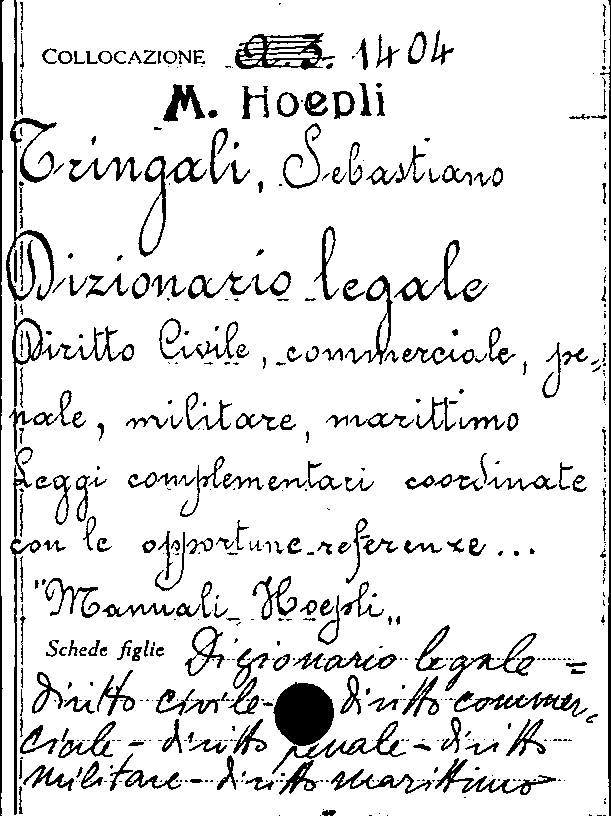 COLLOCAZIONE a 3. 1404
M. Hoepli
Tringali, Sebastiano
Dizionario legale
Diritto Civile, commerciale, pe-
nale, militare, marittimo
Leggi complementari coordinate
con le opportune referenze...
"Manuali Hoepli„
Schede figlie Dizionario legale =
diritto civile - diritto commer-
ciale - diritto penale - diritto
militare - diritto marittimo